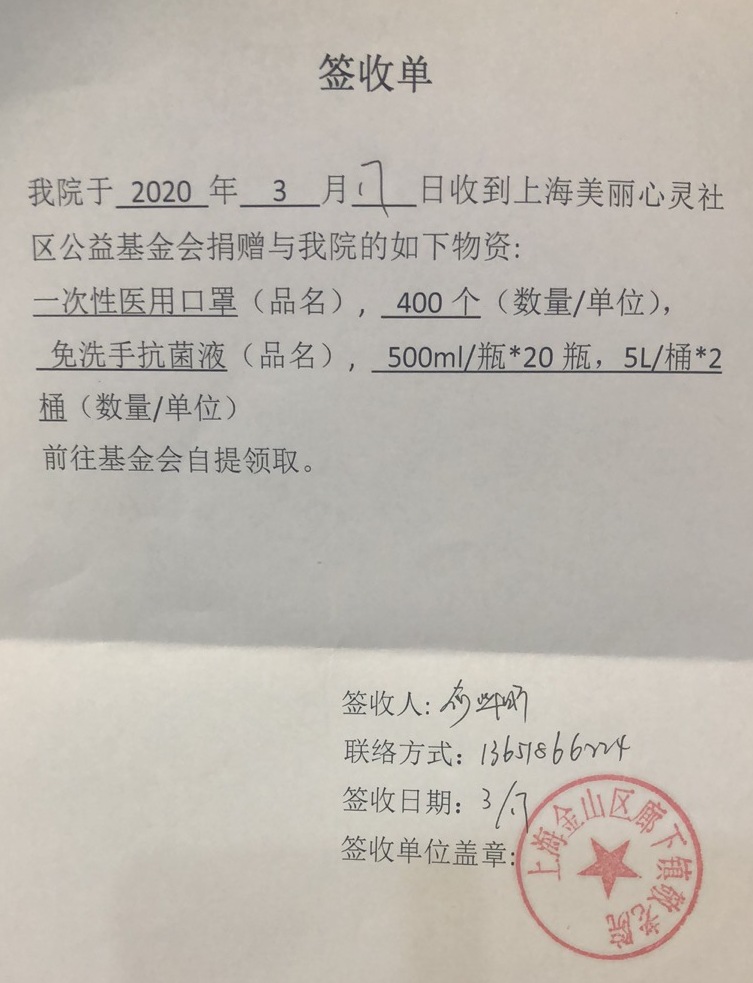 签收单
我院于 2020 年 3 月 17 日收到上海美丽心灵社
区公益基金会捐赠与我院的如下物资:
一次性医用口罩（品名）, 400 个（数量/单位），
免洗手抗菌液（品名）, 500ml/瓶*20 瓶，5L/桶*2
桶（数量/单位）
前往基金会自提领取。
签收人:
联络方式：13651866224
签收日期：3/17
签收单位盖章:
上海金山区廊下镇敬老院